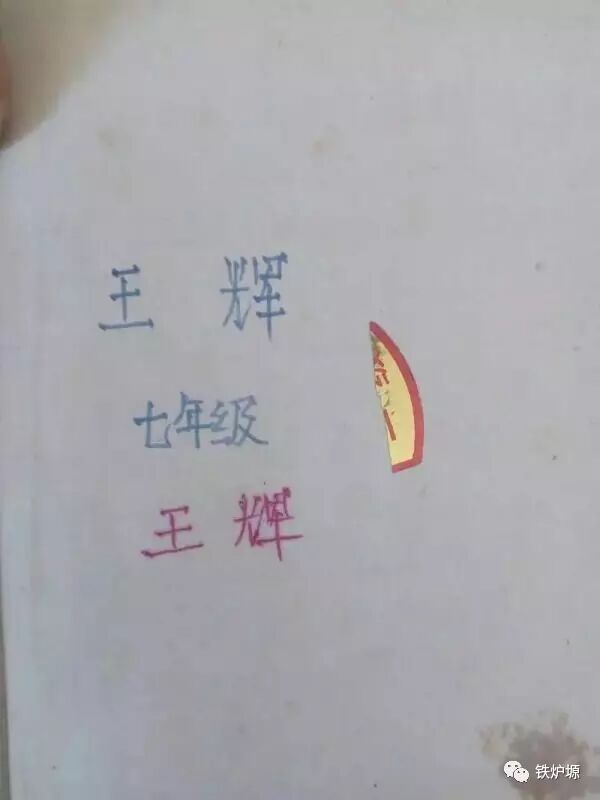 王 辉
七年级
王 辉
铁炉塬